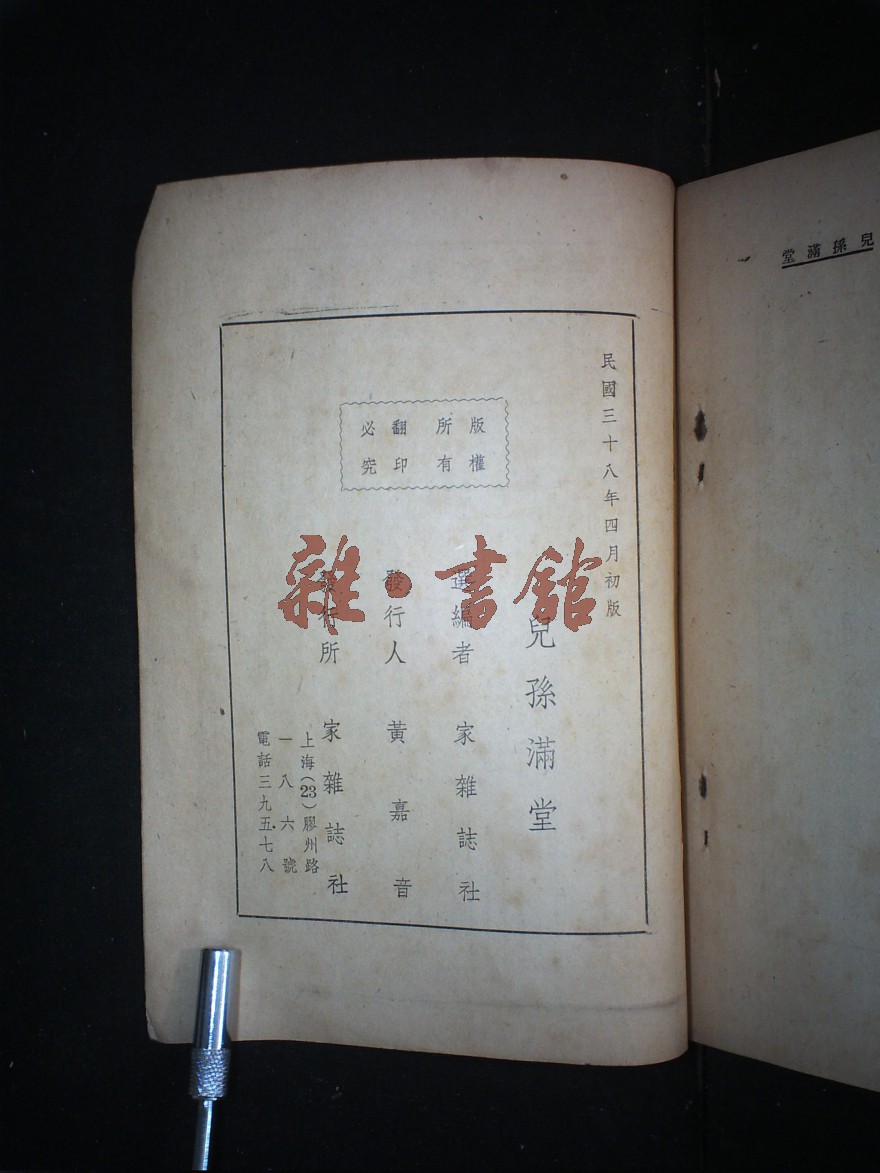 兒孫滿堂
民國三十八年四月初版
版權
所有
翻印
必究
兒孫滿堂
選編者 家雜誌社
發行人 黃嘉音
發行所 家雜誌社
上海(23)膠州路
一八六號
電話三九五七八
雜·書館